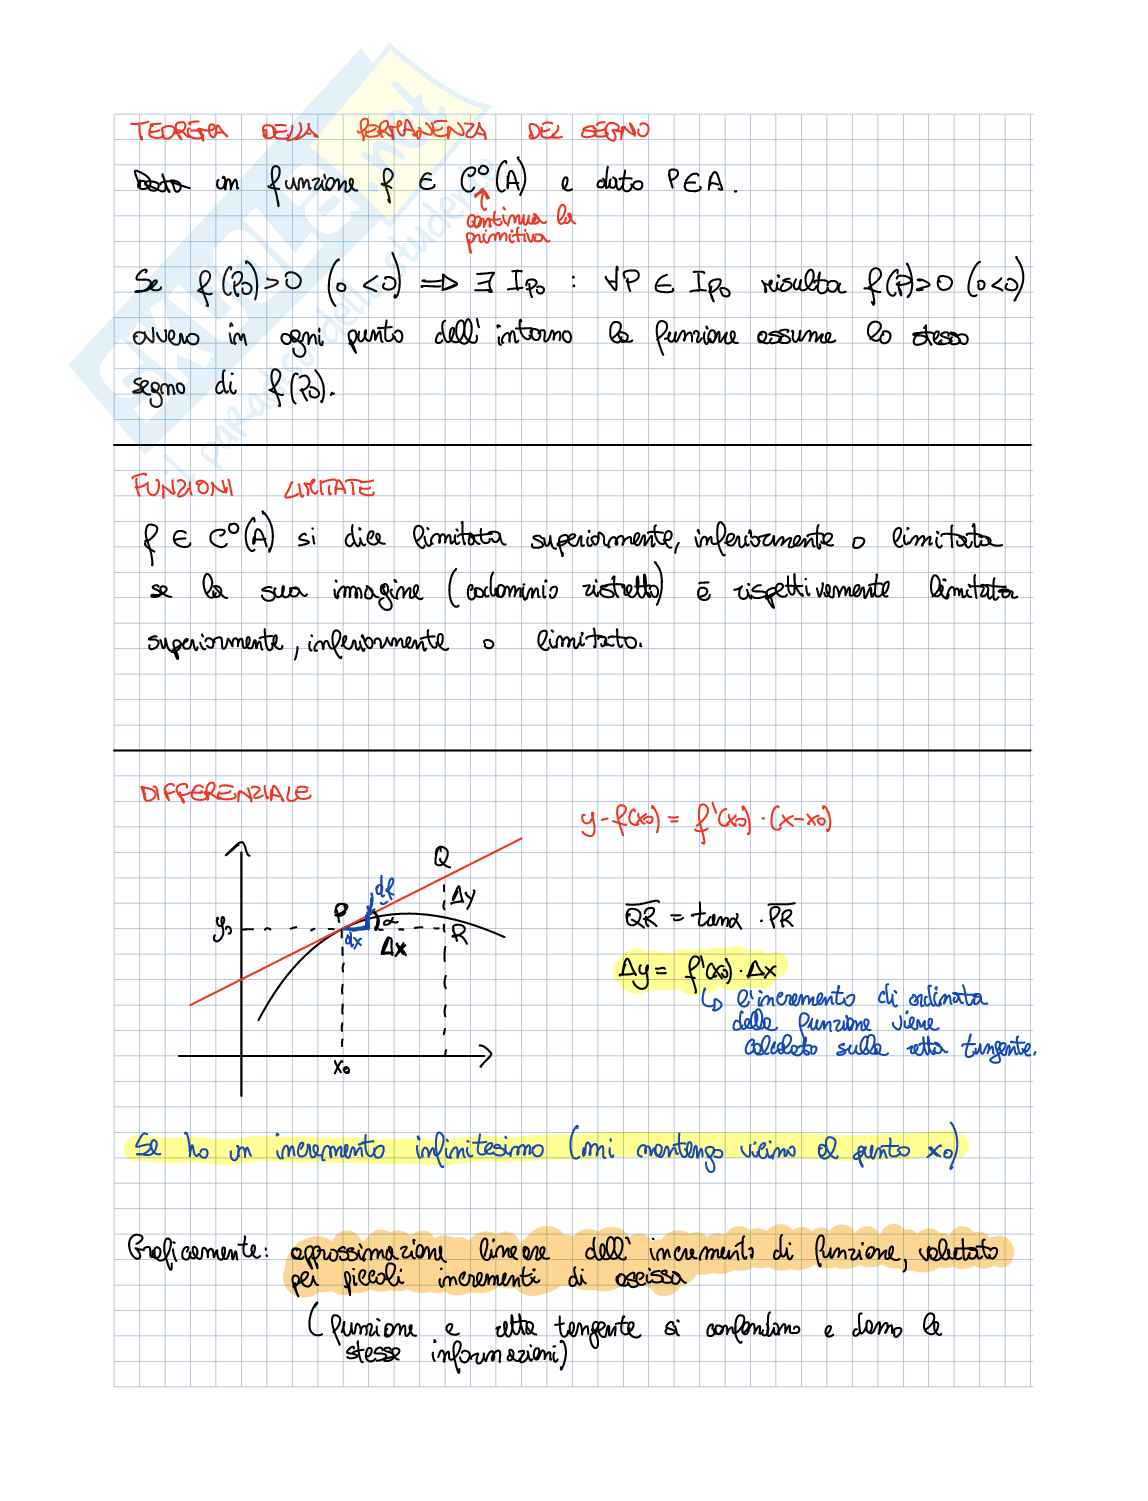 TEOREMA DELLA PERMANENZA DEL SEGNO
Data un funzione f ∈ C⁰(A) e dato P∈A.
continua la
primitiva
Se f(P₀)>0 (o <0) ⟹ ∃ I_P₀ : ∀P ∈ I_P₀ risulta f(P)>0 (o<0)
ovvero in ogni punto dell'intorno la funzione assume lo stesso
segno di f(P₀).
FUNZIONI LIMITATE
f ∈ C⁰(A) si dice limitata superiormente, inferiormente o limitata
se la sua immagine (codominio ristretto) è rispettivamente limitata
superiormente, inferiormente o limitato.
DIFFERENZIALE
y-f(x₀) = f'(x₀)·(x-x₀)
Q
df
Δy
P
α
y₀
dx
Δx
R
x₀
QR = tanα · PR
Δy = f'(x₀)·Δx
↳ l'incremento di ordinata
della funzione viene
calcolato sulla retta tangente.
Se ho un incremento infinitesimo (mi mantengo vicino al punto x₀)
Graficamente: approssimazione lineare dell'incremento di funzione, valutato
per piccoli incrementi di ascissa
(funzione e retta tangente si confondono e danno le
stesse informazioni)
SKUOLA.net
il paradiso dello studente